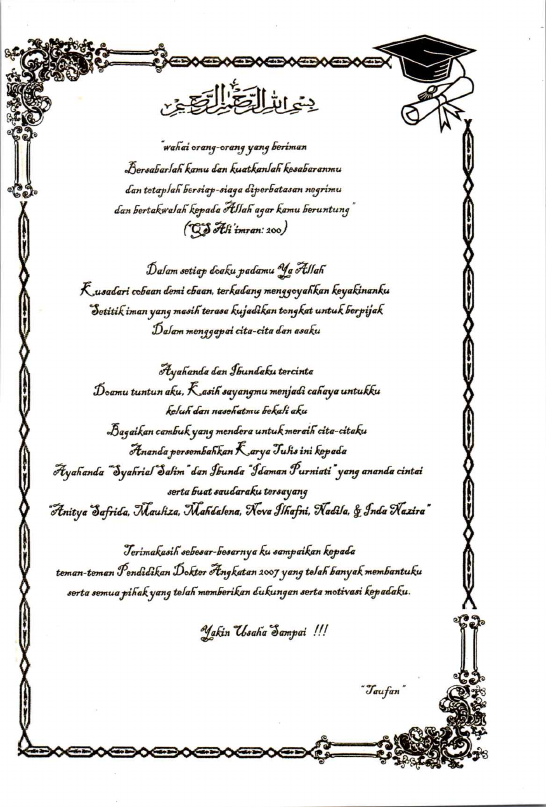 بسم الله الرحمن الرحيم
"wahai orang-orang yang beriman
Bersabarlah kamu dan kuatkanlah kesabaranmu
dan tetaplah bersiap-siaga diperbatasan negrimu
dan bertakwalah kepada Allah agar kamu beruntung"
(QS Ali'imran: 200)
Dalam setiap doaku padamu Ya Allah
Kusadari cobaan demi cbaan, terkadang menggoyahkan keyakinanku
Setitik iman yang masih terasa kujadikan tongkat untuk berpijak
Dalam menggapai cita-cita dan asaku
Ayahanda dan Ibundaku tercinta
Doamu tuntun aku, Kasih sayangmu menjadi cahaya untukku
keluh dan nasehatmu bekali aku
Bagaikan cambuk yang mendera untuk meraih cita-citaku
Ananda persembahkan Karya Tulis ini kepada
Ayahanda "Syahrial Salim" dan Ibunda "Idaman Purniati" yang ananda cintai
serta buat saudaraku tersayang
"Anitya Safrida, Mauliza, Mahdalena, Nova Ilhafni, Nadila, & Inda Nazira"
Terimakasih sebesar-besarnya ku sampaikan kepada
teman-teman Pendidikan Dokter Angkatan 2007 yang telah banyak membantuku
serta semua pihak yang telah memberikan dukungan serta motivasi kepadaku.
Yakin Usaha Sampai !!!
"Taufan"